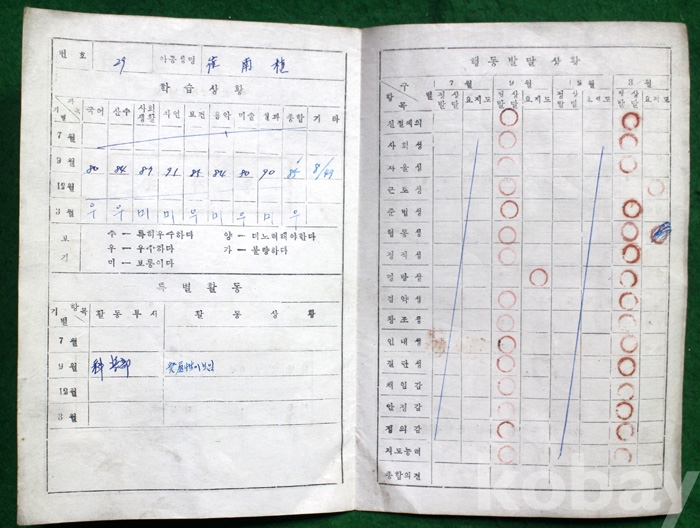 번 호 29 아동성명 崔
학 습 상 황
국어 산수 사회생활 자연 보건 음악 미술 실과 종합 기타
7월
9월 80 84 89 91 85 84 80 90 85 8/49
12월
3월 우 우 미 미 우 미 우 미 우
보기
수 — 특히우수하다 양 —
우 — 우수하다 가 — 불량하다
미 — 보통이다
특 별 활 동
기별 항목 활 동 부 서 활 동 상 황
7월
9월 科 部
12월
3월
행 동 발 달 상 황
구별 7월 9월 12월 3월
항목 정상발달 요지도 정상발달 요지도 정상발달 요지도 정상발달 요지도
친절예의
사회성
자율성
근로성
준법성
협동성
정직성
명랑성
심미성
창조성
인내성
결단성
책임감
안정감
정의감
지도능력
종합의견
kobay